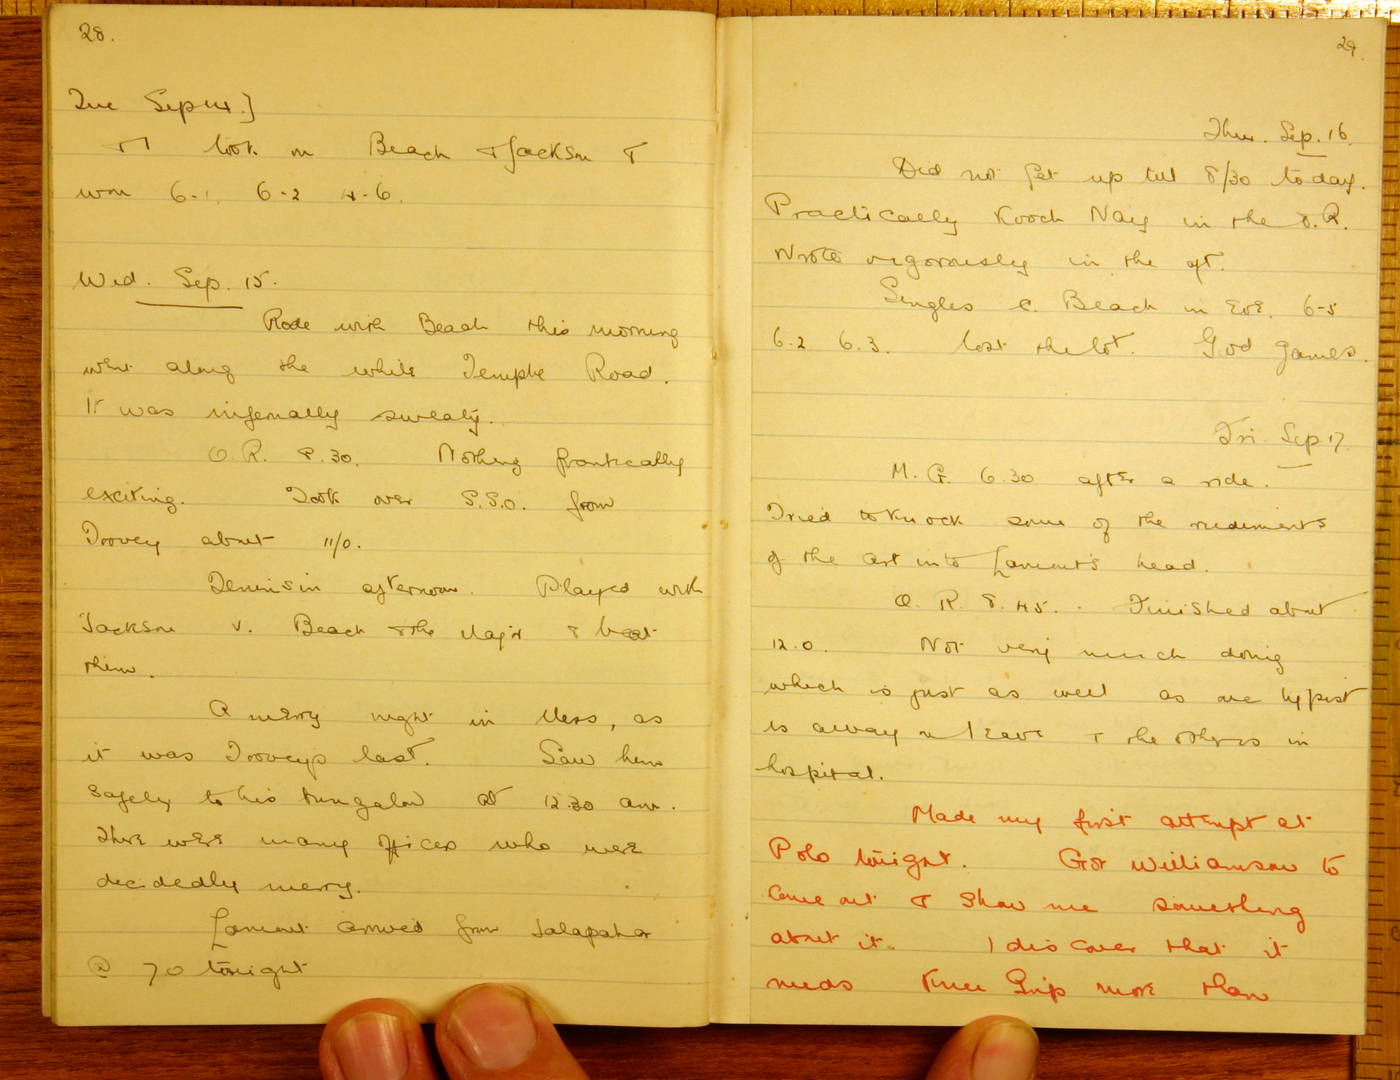 28.
Tue Sep 14.]
& I took on Beach & Jackson &
won 6-1 6-2 4-6.
Wed. Sep. 15.
Rode with Beach this morning
went along the white Temple Road.
It was infernally sweaty.
O.R. 8.30. Nothing frantically
exciting. Took over S.S.O. from
Trovey about 11/0.
Tennis in afternoon. Played with
Jackson v. Beach & the Major & beat
them.
A merry night in Mess, as
it was Troveys last. Saw him
safely to his bungalow at 12.30 am.
There were many officers who were
decidedly merry.
Lamont arrived from Jalapahar
@ 7 0 tonight
29.
Thur. Sep. 16.
Did not get up till 8/30 today.
Practically Kooch Naiy in the O.R.
Wrote vigorously in the aft.
Singles c. Beach in Eve. 6-5
6.2 6.3. lost the lot. Good games.
Fri Sep 17
M.G. 6.30 after a ride.
Tried to knock some of the rudiments
of the art into Lamont's head.
O.R. 8.45. Finished about
12.0. Not very much doing
which is just as well as one typist
is away on leave & the others in
hospital.
Made my first attempt at
Polo tonight. Got Williamson to
come out & show me something
about it. I discover that it
needs Knee Grip more than